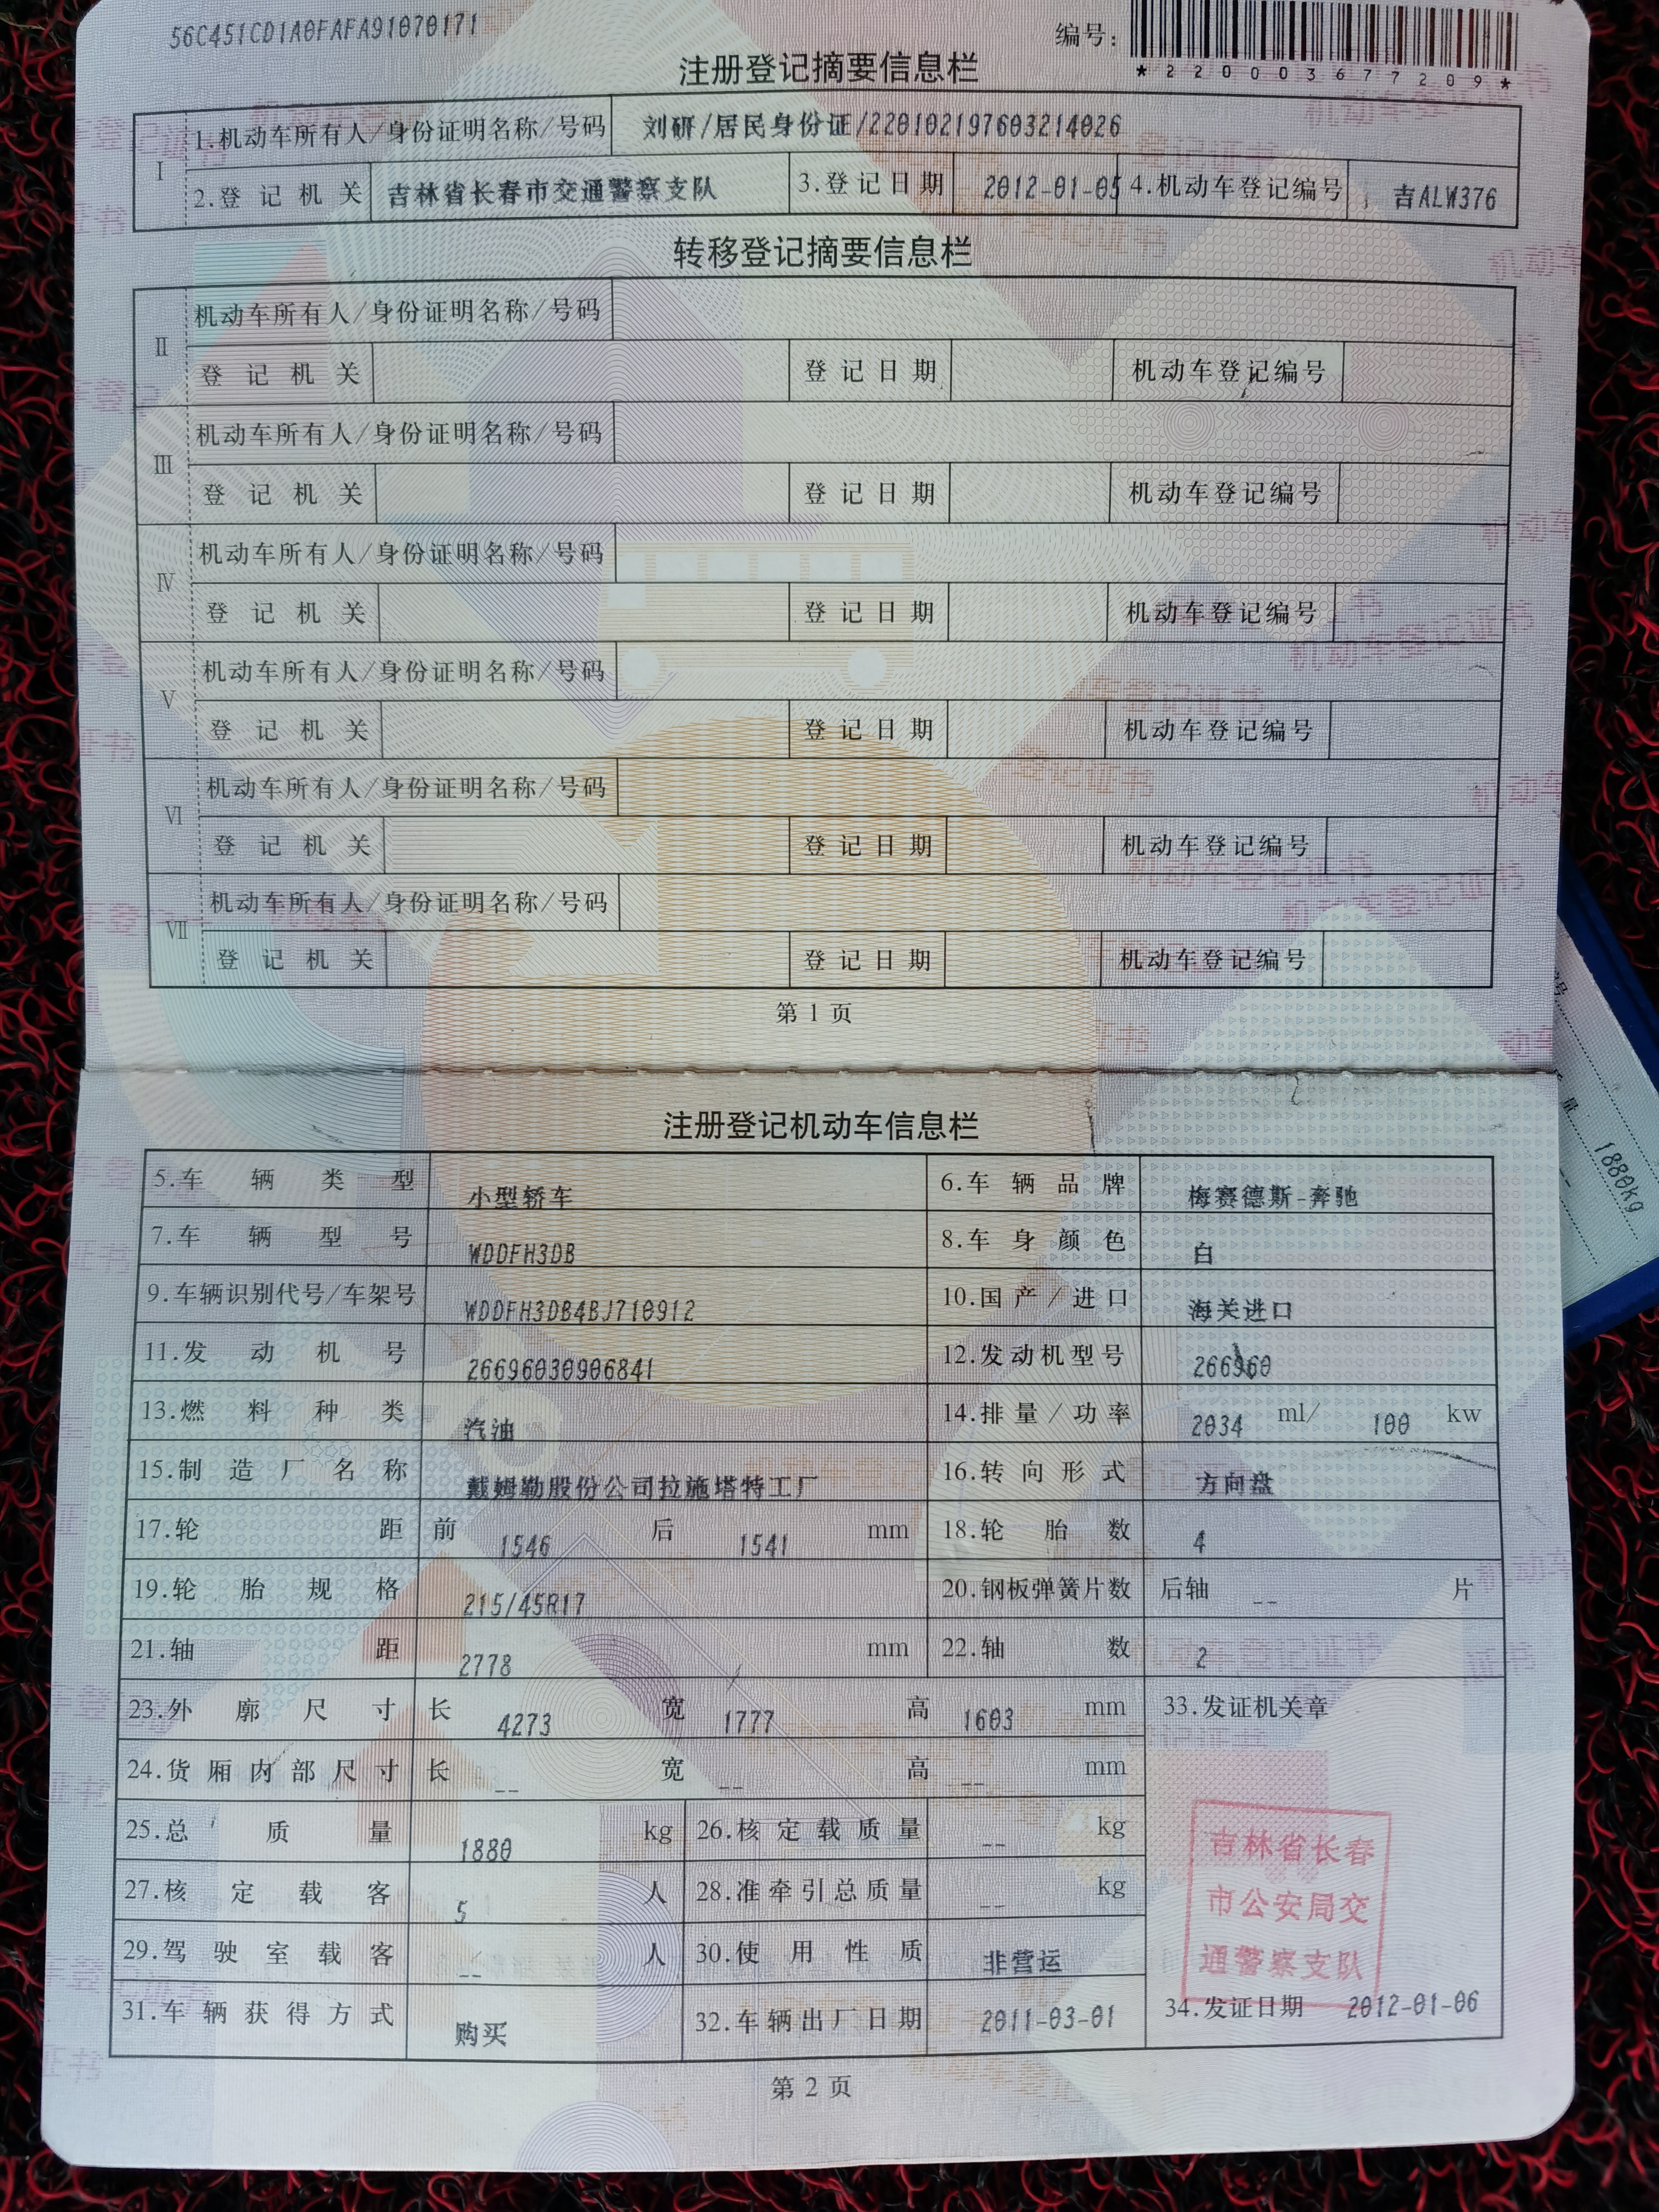 56C451CD1A0FAFA91070171
编号：
*220003677209*
注册登记摘要信息栏
I
1.机动车所有人/身份证明名称/号码 刘研/居民身份证/220102197603214026
2.登记机关 吉林省长春市交通警察支队 3.登记日期 2012-01-05 4.机动车登记编号 吉ALW376
转移登记摘要信息栏
II
机动车所有人/身份证明名称/号码
登记机关 登记日期 机动车登记编号
III
机动车所有人/身份证明名称/号码
登记机关 登记日期 机动车登记编号
IV
机动车所有人/身份证明名称/号码
登记机关 登记日期 机动车登记编号
V
机动车所有人/身份证明名称/号码
登记机关 登记日期 机动车登记编号
VI
机动车所有人/身份证明名称/号码
登记机关 登记日期 机动车登记编号
VII
机动车所有人/身份证明名称/号码
登记机关 登记日期 机动车登记编号
第 1 页
注册登记机动车信息栏
5.车辆类型 小型轿车 6.车辆品牌 梅赛德斯-奔驰
7.车辆型号 WDDFH3DB 8.车身颜色 白
9.车辆识别代号/车架号 WDDFH3DB4BJ710912 10.国产/进口 海关进口
11.发动机号 26696030906841 12.发动机型号 266960
13.燃料种类 汽油 14.排量/功率 2034 ml/ 100 kw
15.制造厂名称 戴姆勒股份公司拉施塔特工厂 16.转向形式 方向盘
17.轮距 前 1546 后 1541 mm 18.轮胎数 4
19.轮胎规格 215/45R17 20.钢板弹簧片数 后轴 -- 片
21.轴距 2778 mm 22.轴数 2
23.外廓尺寸 长 4273 宽 1777 高 1603 mm 33.发证机关章
24.货厢内部尺寸 长 -- 宽 -- 高 -- mm
25.总质量 1880 kg 26.核定载质量 -- kg
27.核定载客 5 人 28.准牵引总质量 -- kg
29.驾驶室载客 -- 人 30.使用性质 非营运
吉林省长春
市公安局交
通警察支队
31.车辆获得方式 购买 32.车辆出厂日期 2011-03-01 34.发证日期 2012-01-06
第 2 页
1880kg